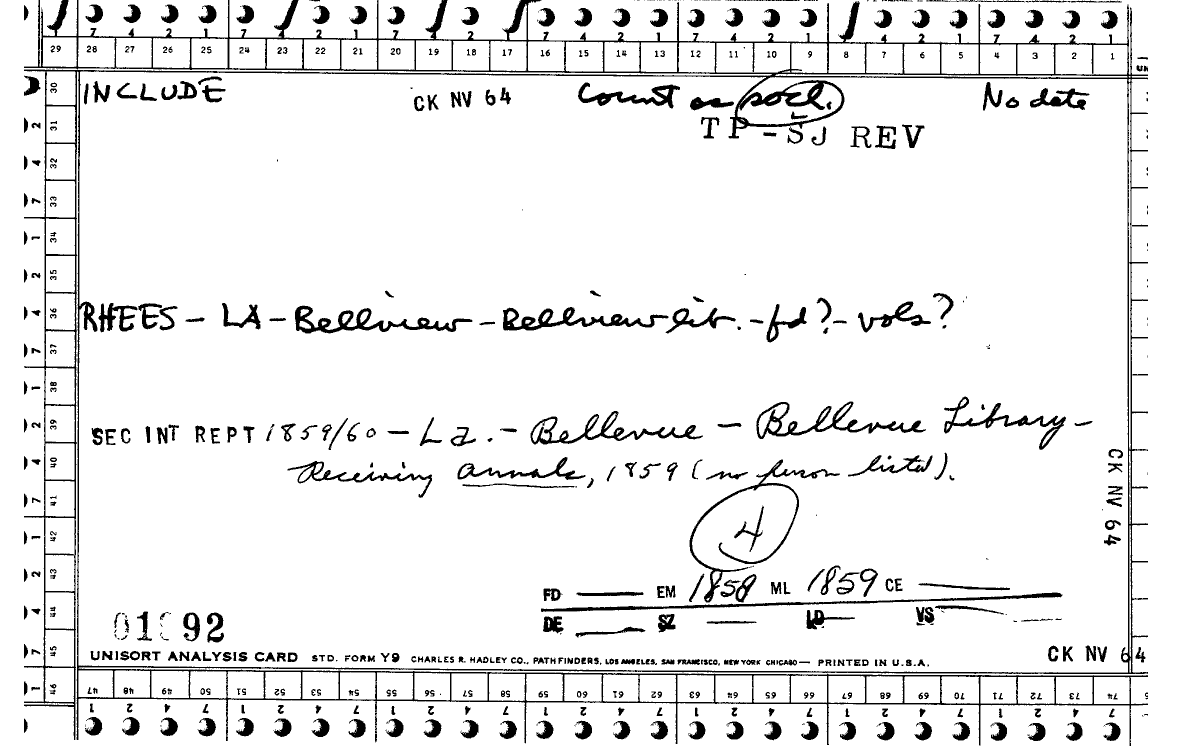 7 4 2 1 7 4 2 1 7 4 2 1 7 4 2 1 7 4 2 1 7 4 2 1 7 4 2 1
29 28 27 26 25 24 23 22 21 20 19 18 17 16 15 14 13 12 11 10 9 8 7 6 5 4 3 2 1
30 INCLUDE CK NV 64 Count as socl. No date
2 31 TP-SJ REV
4 32
7 33
1 34
2 35
4 36 RHEES - LA - Bellview - Bellview lib. - fd? - vols?
7 37
1 38
2 39 SEC INT REPT 1859/60 - La. - Bellevue - Bellevue Library -
4 40 Receiving Annals, 1859 (no person listed).
CK NV 64
7 41
1 42 4
2 43 FD EM 1858 ML 1859 CE
4 44 DE SZ LD VS
01 92
7 45 UNISORT ANALYSIS CARD STD. FORM Y9 CHARLES R. HADLEY CO., PATHFINDERS, LOS ANGELES, SAN FRANCISCO, NEW YORK CHICAGO — PRINTED IN U.S.A.
CK NV 64
1 46
47 48 49 50 51 52 53 54 55 56 57 58 59 60 61 62 63 64 65 66 67 68 69 70 71 72 73 74
1 2 4 7 1 2 4 7 1 2 4 7 1 2 4 7 1 2 4 7 1 2 4 7 1 2 4 7